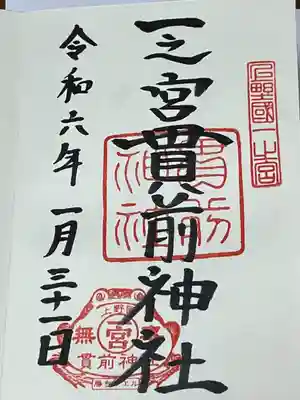 上野國一之宮
一之宮貫前神社
貫前神社
令和六年一月三十一日
上野國
一宮
無
貫前神社